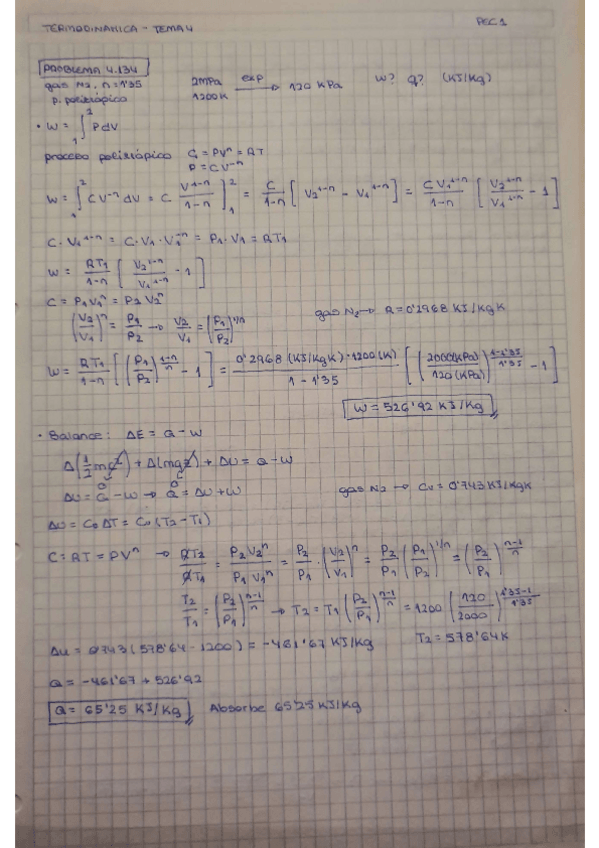 TERMODINÁMICA - TEMA 4 PEC 1
PROBLEMA 4.134
gas N2, n=1'35 2MPa exp → 120 KPa W? Q? (KJ/Kg)
p. politrópico 1200K
• W = ∫₁² P dV
proceso politrópico C = PVⁿ = RT
P = CV⁻ⁿ
W = ∫₁² CV⁻ⁿ dV = C V¹⁻ⁿ/(1-n) ]₁² = C/(1-n) [ V2¹⁻ⁿ - V1¹⁻ⁿ ] = CV1¹⁻ⁿ/(1-n) [ V2¹⁻ⁿ/V1¹⁻ⁿ - 1 ]
C·V1¹⁻ⁿ = C·V1·V1⁻ⁿ = P1·V1 = RT1
W = RT1/(1-n) [ V2¹⁻ⁿ/V1¹⁻ⁿ - 1 ]
C = P1V1ⁿ = P2V2ⁿ
(V2/V1)ⁿ = P1/P2 → V2/V1 = (P1/P2)^(1/n) gas N2 → R = 0'2968 KJ/KgK
W = RT1/(1-n) [ (P1/P2)^((1-n)/n) - 1 ] = 0'2968 (KJ/KgK)·1200(K)/(1-1'35) [ (2000(KPa)/120(KPa))^((1-1'35)/1'35) - 1 ]
W = 526'92 KJ/Kg
• Balance: ΔE = Q - W
Δ(½mc²) + Δ(mgz) + ΔU = Q - W
0 0
ΔU = Q - W → Q = ΔU + W gas N2 → Cv = 0'743 KJ/KgK
ΔU = Cv ΔT = Cv (T2 - T1)
C = RT = PVⁿ → RT2/RT1 = P2V2ⁿ/P1V1ⁿ = P2/P1 · (V2/V1)ⁿ = P2/P1 (P1/P2)^(1/n) = (P2/P1)^((n-1)/n)
T2/T1 = (P2/P1)^((n-1)/n) → T2 = T1 (P2/P1)^((n-1)/n) = 1200 (120/2000)^((1'35-1)/1'35)
ΔU = 0'743 (578'64 - 1200) = -461'67 KJ/Kg T2 = 578'64K
Q = -461'67 + 526'92
Q = 65'25 KJ/Kg Absorbe 65'25 KJ/Kg